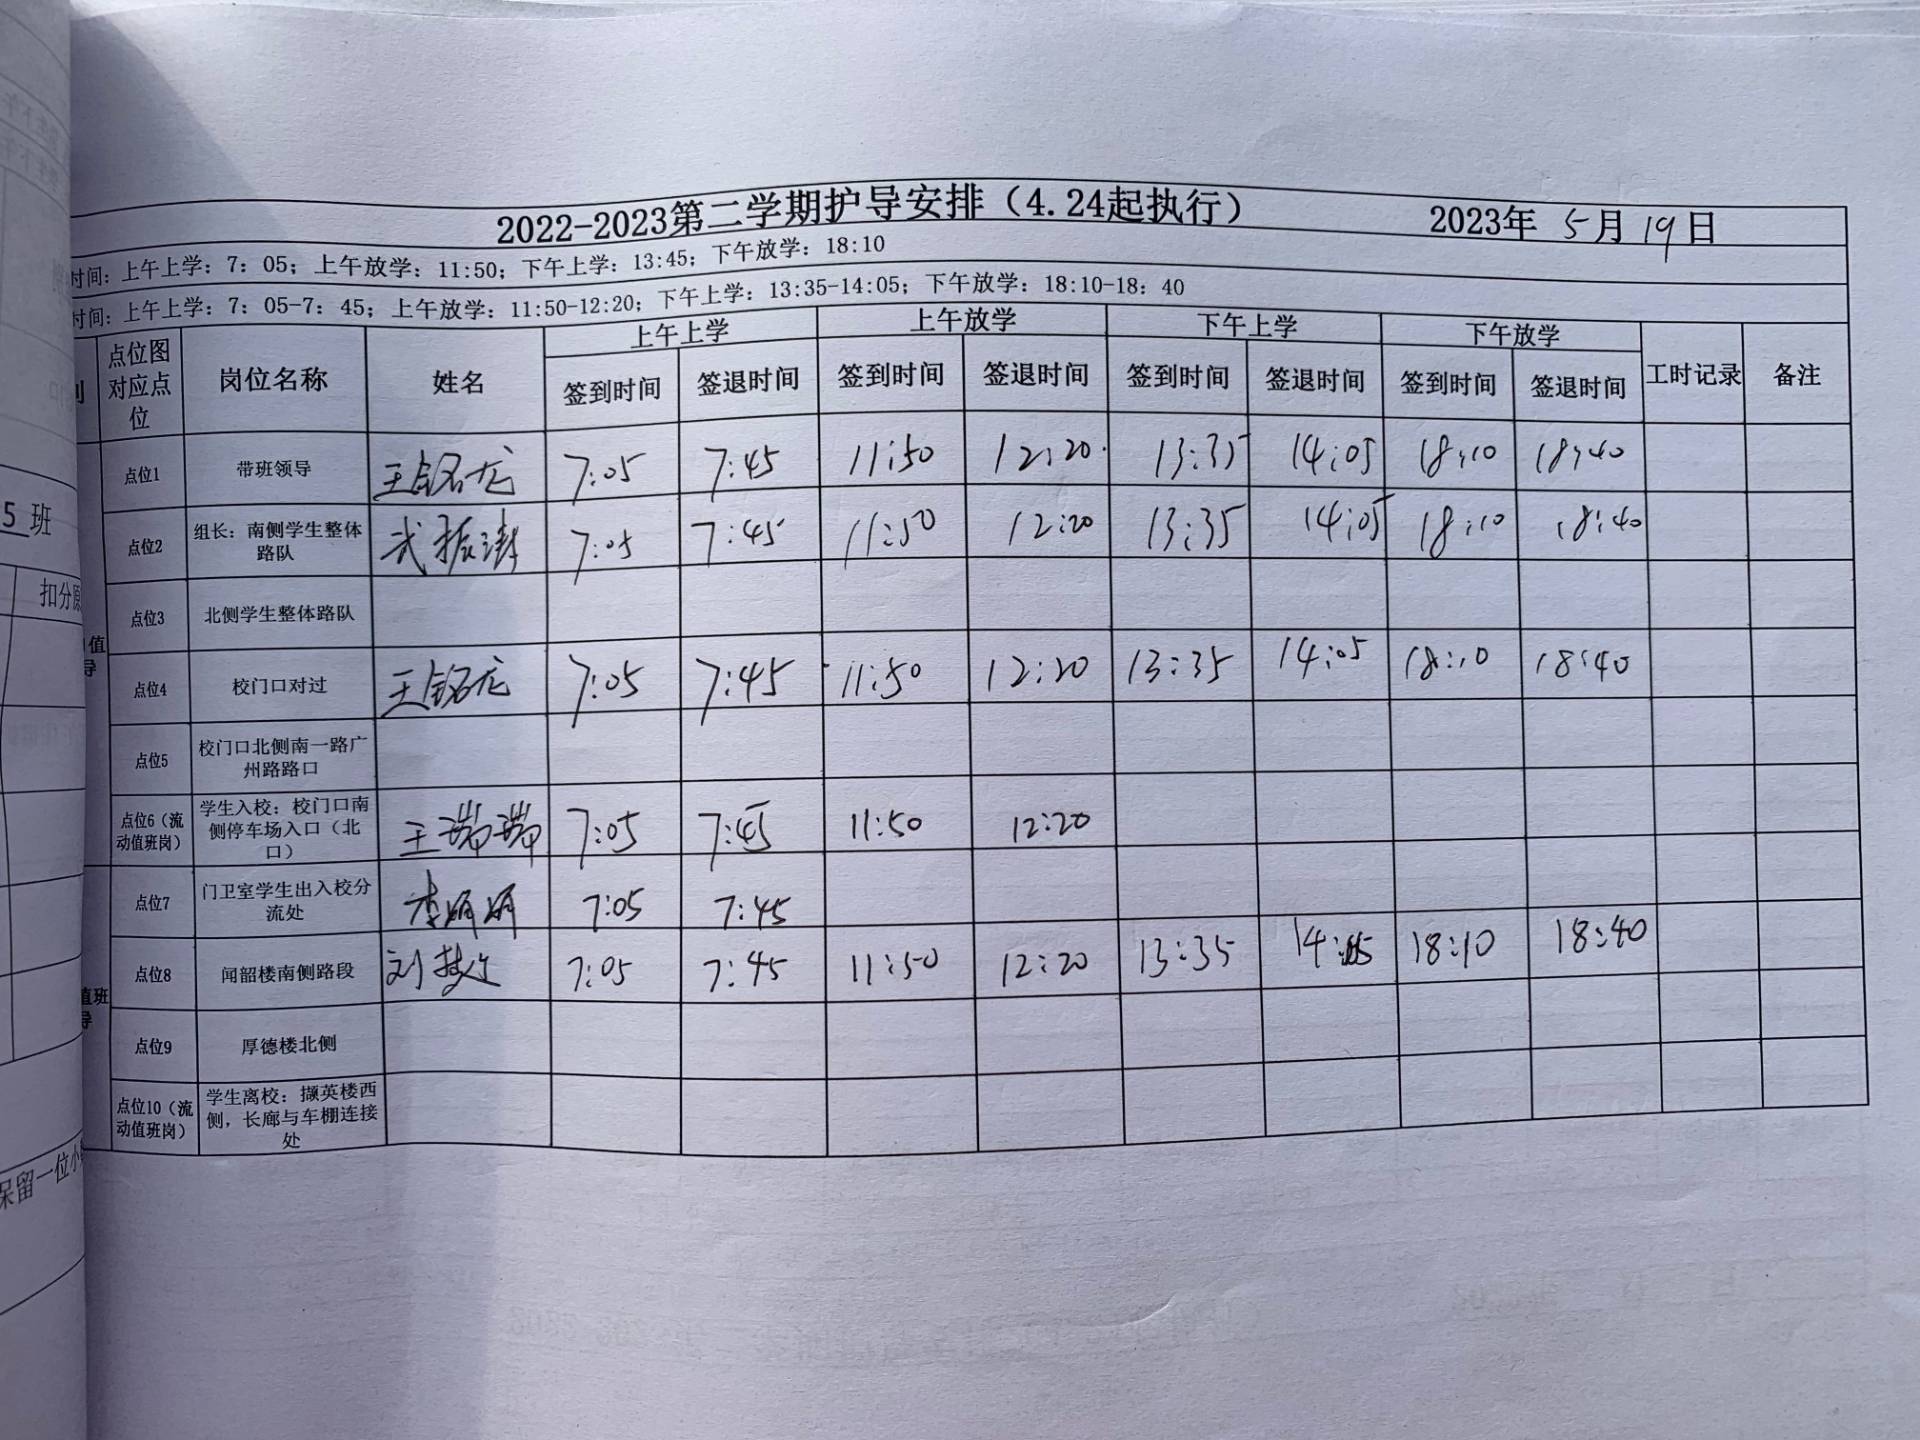 2022-2023第二学期护导安排（4.24起执行） 2023年 5月 19日
时间：上午上学：7：05；上午放学：11:50；下午上学：13:45；下午放学：18:10
时间：上午上学：7：05-7：45；上午放学：11:50-12:20；下午上学：13:35-14:05；下午放学：18:10-18：40
点位图对应点位 岗位名称 姓名 上午上学 上午放学 下午上学 下午放学 工时记录 备注
签到时间 签退时间 签到时间 签退时间 签到时间 签退时间 签到时间 签退时间
点位1 带班领导 王铭龙 7:05 7:45 11:50 12:20 13:35 14:05 18:10 18:40
点位2 组长：南侧学生整体路队 武振 7:05 7:45 11:50 12:20 13:35 14:05 18:10 18:40
点位3 北侧学生整体路队
点位4 校门口对过 王铭龙 7:05 7:45 11:50 12:20 13:35 14:05 18:10 18:40
点位5 校门口北侧南一路广州路路口
点位6（流动值班岗） 学生入校：校门口南侧停车场入口（北口） 王瑞瑞 7:05 7:45 11:50 12:20
点位7 门卫室学生出入校分流处 李娟娟 7:05 7:45
点位8 闻韶楼南侧路段 刘 7:05 7:45 11:50 12:20 13:35 14:05 18:10 18:40
点位9 厚德楼北侧
点位10（流动值班岗） 学生离校：撷英楼西侧，长廊与车棚连接处
值
导
值班
导
5 班
扣分原
保留一位小